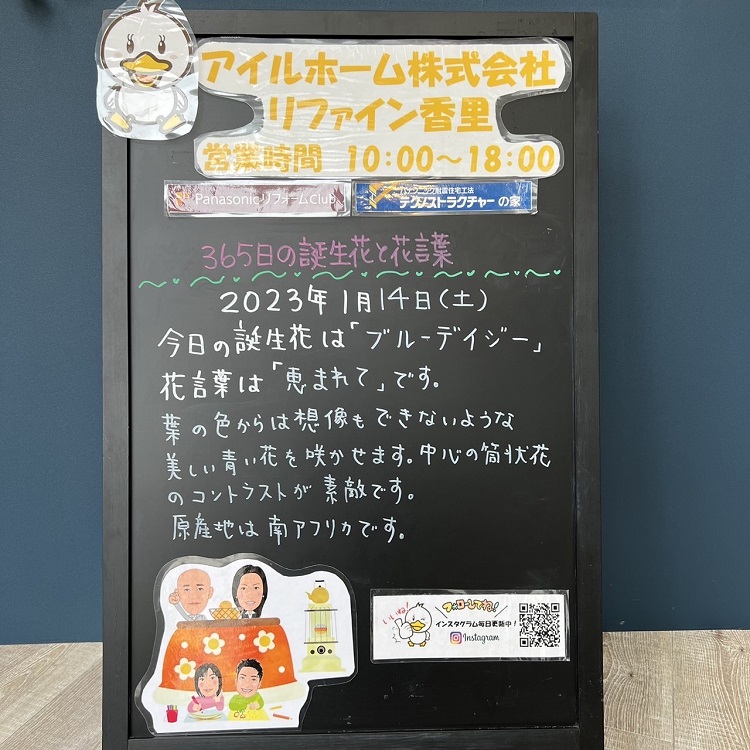 アイルホーム株式会社
リファイン香里
営業時間 10:00～18:00
PanasonicリフォームClub
パナソニック耐震住宅工法
テクノストラクチャーの家
365日の誕生花と花言葉
2023年1月14日(土)
今日の誕生花は「ブルーデイジー」
花言葉は「恵まれて」です。
葉の色からは想像もできないような
美しい青い花を咲かせます。中心の筒状花
のコントラストが素敵です。
原産地は南アフリカです。
いいね!
フォローしてね!
インスタグラム毎日更新中!
Instagram